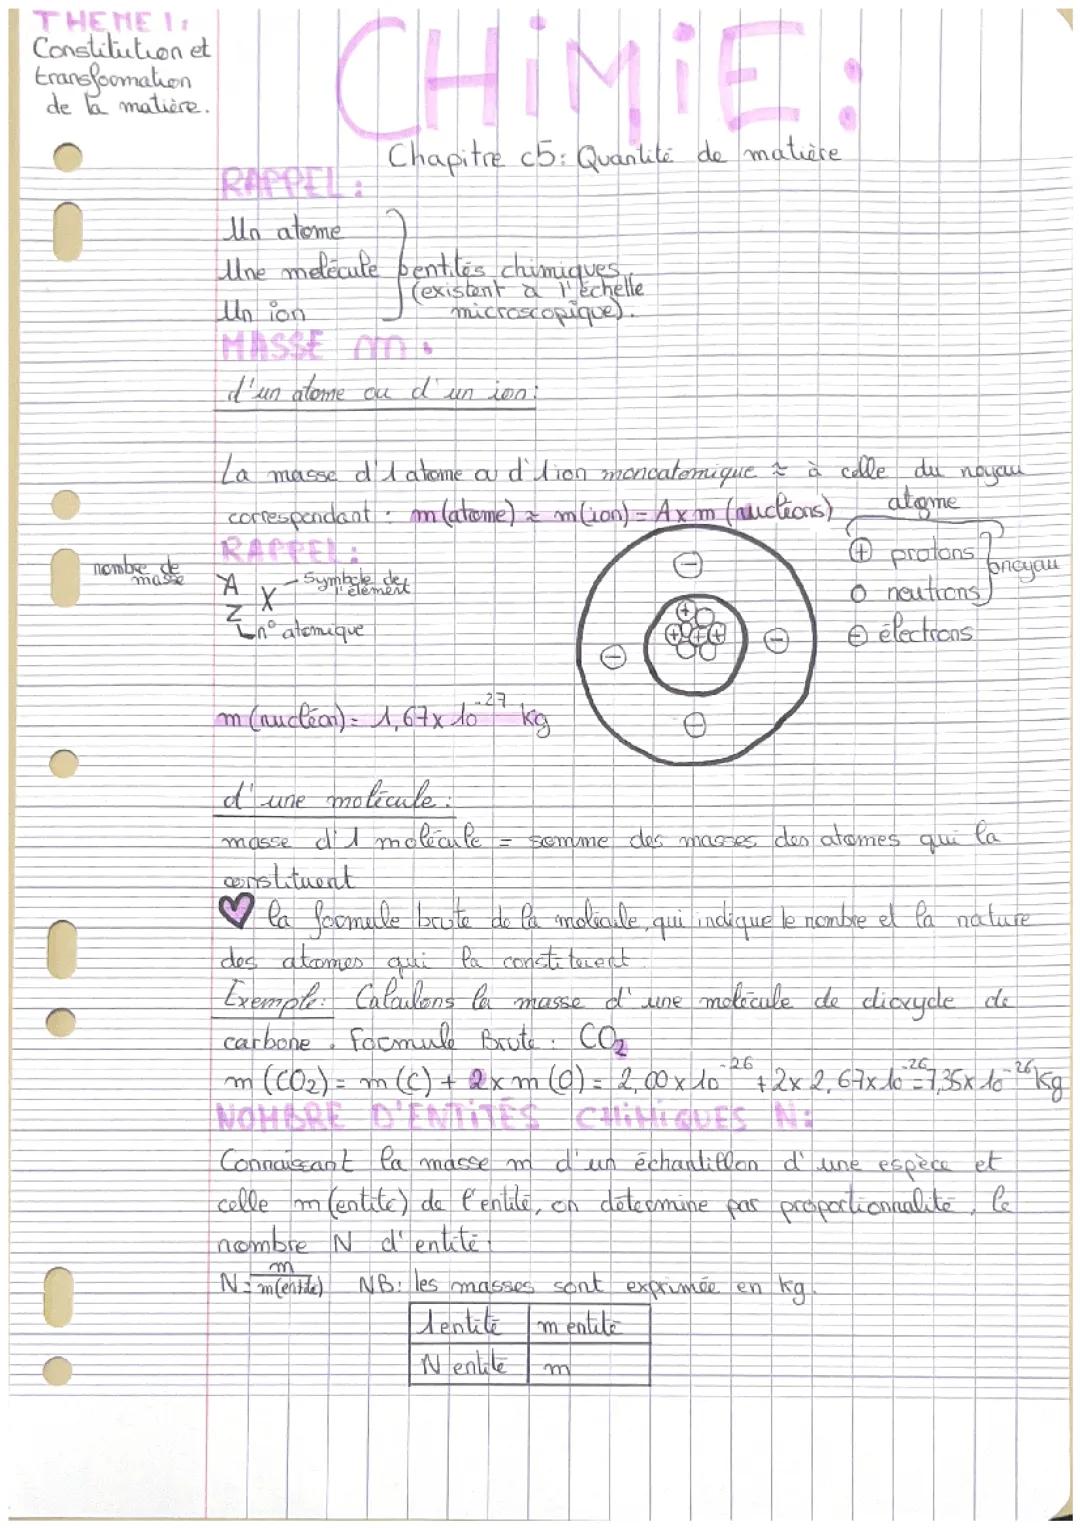 THEME 1:
Constitution et
transformation
de la matière.
CHiMiE:
Chapitre c5: Quantité de matière
RAPPEL:
Un atome
Une molécule } entités chimiques
(existent à l'échelle
microscopique).
Un ion
MASSE m:
d'un atome ou d'un ion:
La masse d'1 atome ou d'1 ion monoatomique ≈ à celle du noyau
correspondant : m(atome) ≈ m(ion) = A x m (nucléons)
RAPPEL:
nombre de
masse
A
X - Symbole de
l'élément
Z
n° atomique
atome
+ protons
o neutrons } noyau
⊖ électrons
m (nucléon) = 1,67 x 10⁻²⁷ kg
d'une molécule:
masse d'1 molécule = somme des masses des atomes qui la
constituent
♥ la formule brute de la molécule, qui indique le nombre et la nature
des atomes qui la constituent.
Exemple: Calculons la masse d'une molécule de dioxyde de
carbone. Formule Brute: CO₂
m (CO2) = m (C) + 2 x m (O) = 2,00 x 10⁻²⁶ + 2x 2,67 x 10⁻²⁶ = 7,35 x 10⁻²⁶ Kg
NOMBRE D'ENTITÉS CHIMIQUES N:
Connaissant la masse m d'un échantillon d'une espèce et
celle m (entité) de l'entité, on détermine par proportionnalité, le
nombre N d'entité:
N = m/m(entité) NB: les masses sont exprimée en kg.
1 entité m entité
N entité m